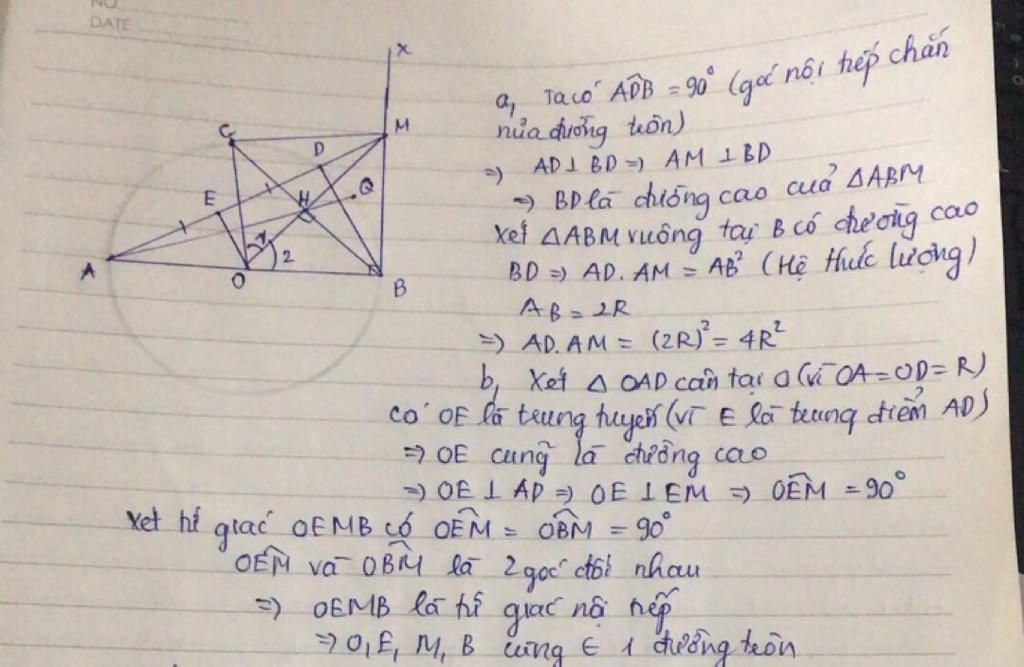 NO
DATE
x
C
M
D
Q
E
H
1
2
A
O
B
a, Ta có ADB̂ = 90° (góc nội tiếp chắn
nửa đường tròn)
=> AD ⊥ BD => AM ⊥ BD
=> BD là đường cao của △ABM
Xét △ABM vuông tại B có đường cao
BD => AD.AM = AB² (Hệ thức lượng)
AB = 2R
=> AD.AM = (2R)² = 4R²
b, Xét △ OAD cân tại O (vì OA = OD = R)
có OE là trung tuyến (vì E là trung điểm AD)
=> OE cũng là đường cao
=> OE ⊥ AD => OE ⊥ EM => OÊM = 90°
Xét tứ giác OEMB có OÊM = OB̂M = 90°
OÊM và OB̂M là 2 góc đối nhau
=> OEMB là tứ giác nội tiếp
=> O, E, M, B cùng ∈ 1 đường tròn